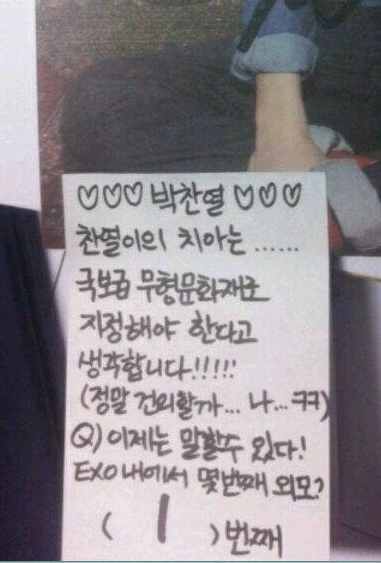 ♡♡♡ 박찬열 ♡♡♡
찬열이의 치아는 ......
국보급 무형문화재로
지정해야 한다고
생각합니다!!!!!
(정말 건의할까... 나...ㅋㅋ)
Q) 이제는 말할수 있다!
EXO내에서 몇번째 외모?
( 1 ) 번째